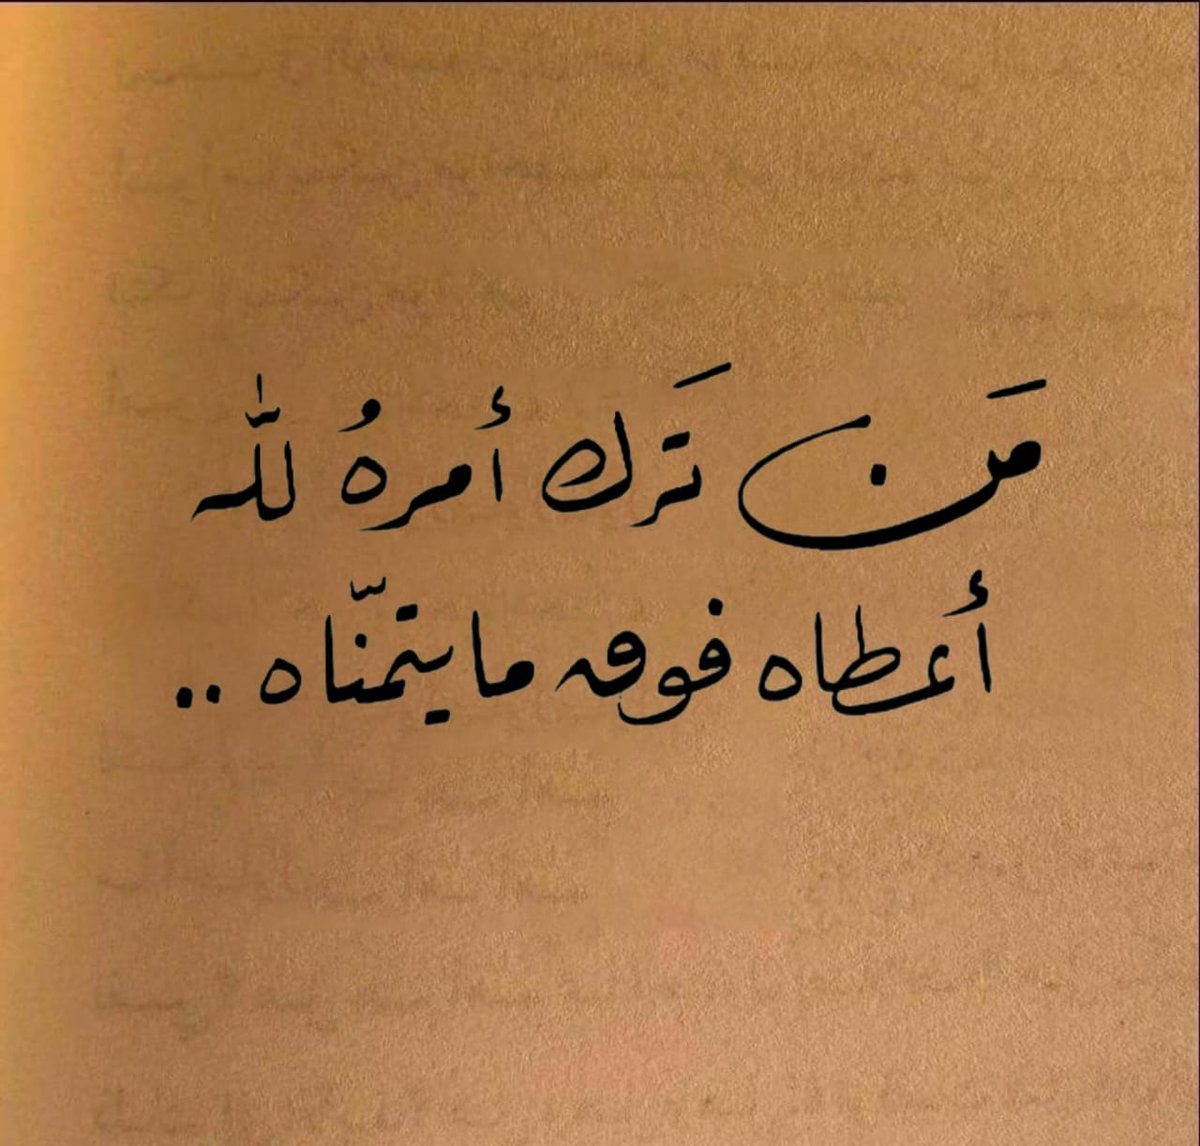 مَن تَرك أمرهُ للّٰه
أعطاه فوق ما يتمنّاه ..